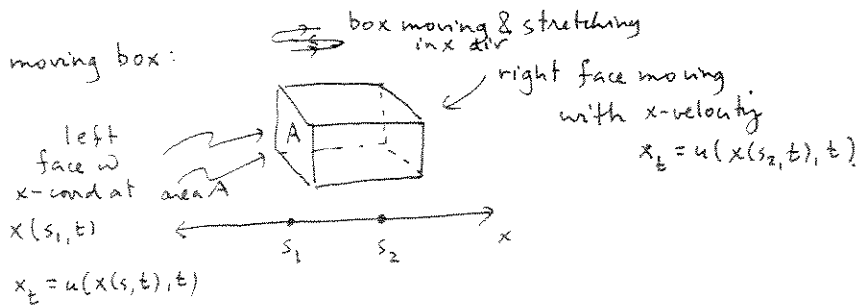 box moving & stretching
in x dir
moving box:
right face moving
with x-velocity
x_t = u(x(s_2, t), t)
A
left
face w
x-coord at area A
x(s_1, t)
s_1 s_2 x
x_t = u(x(s, t), t)